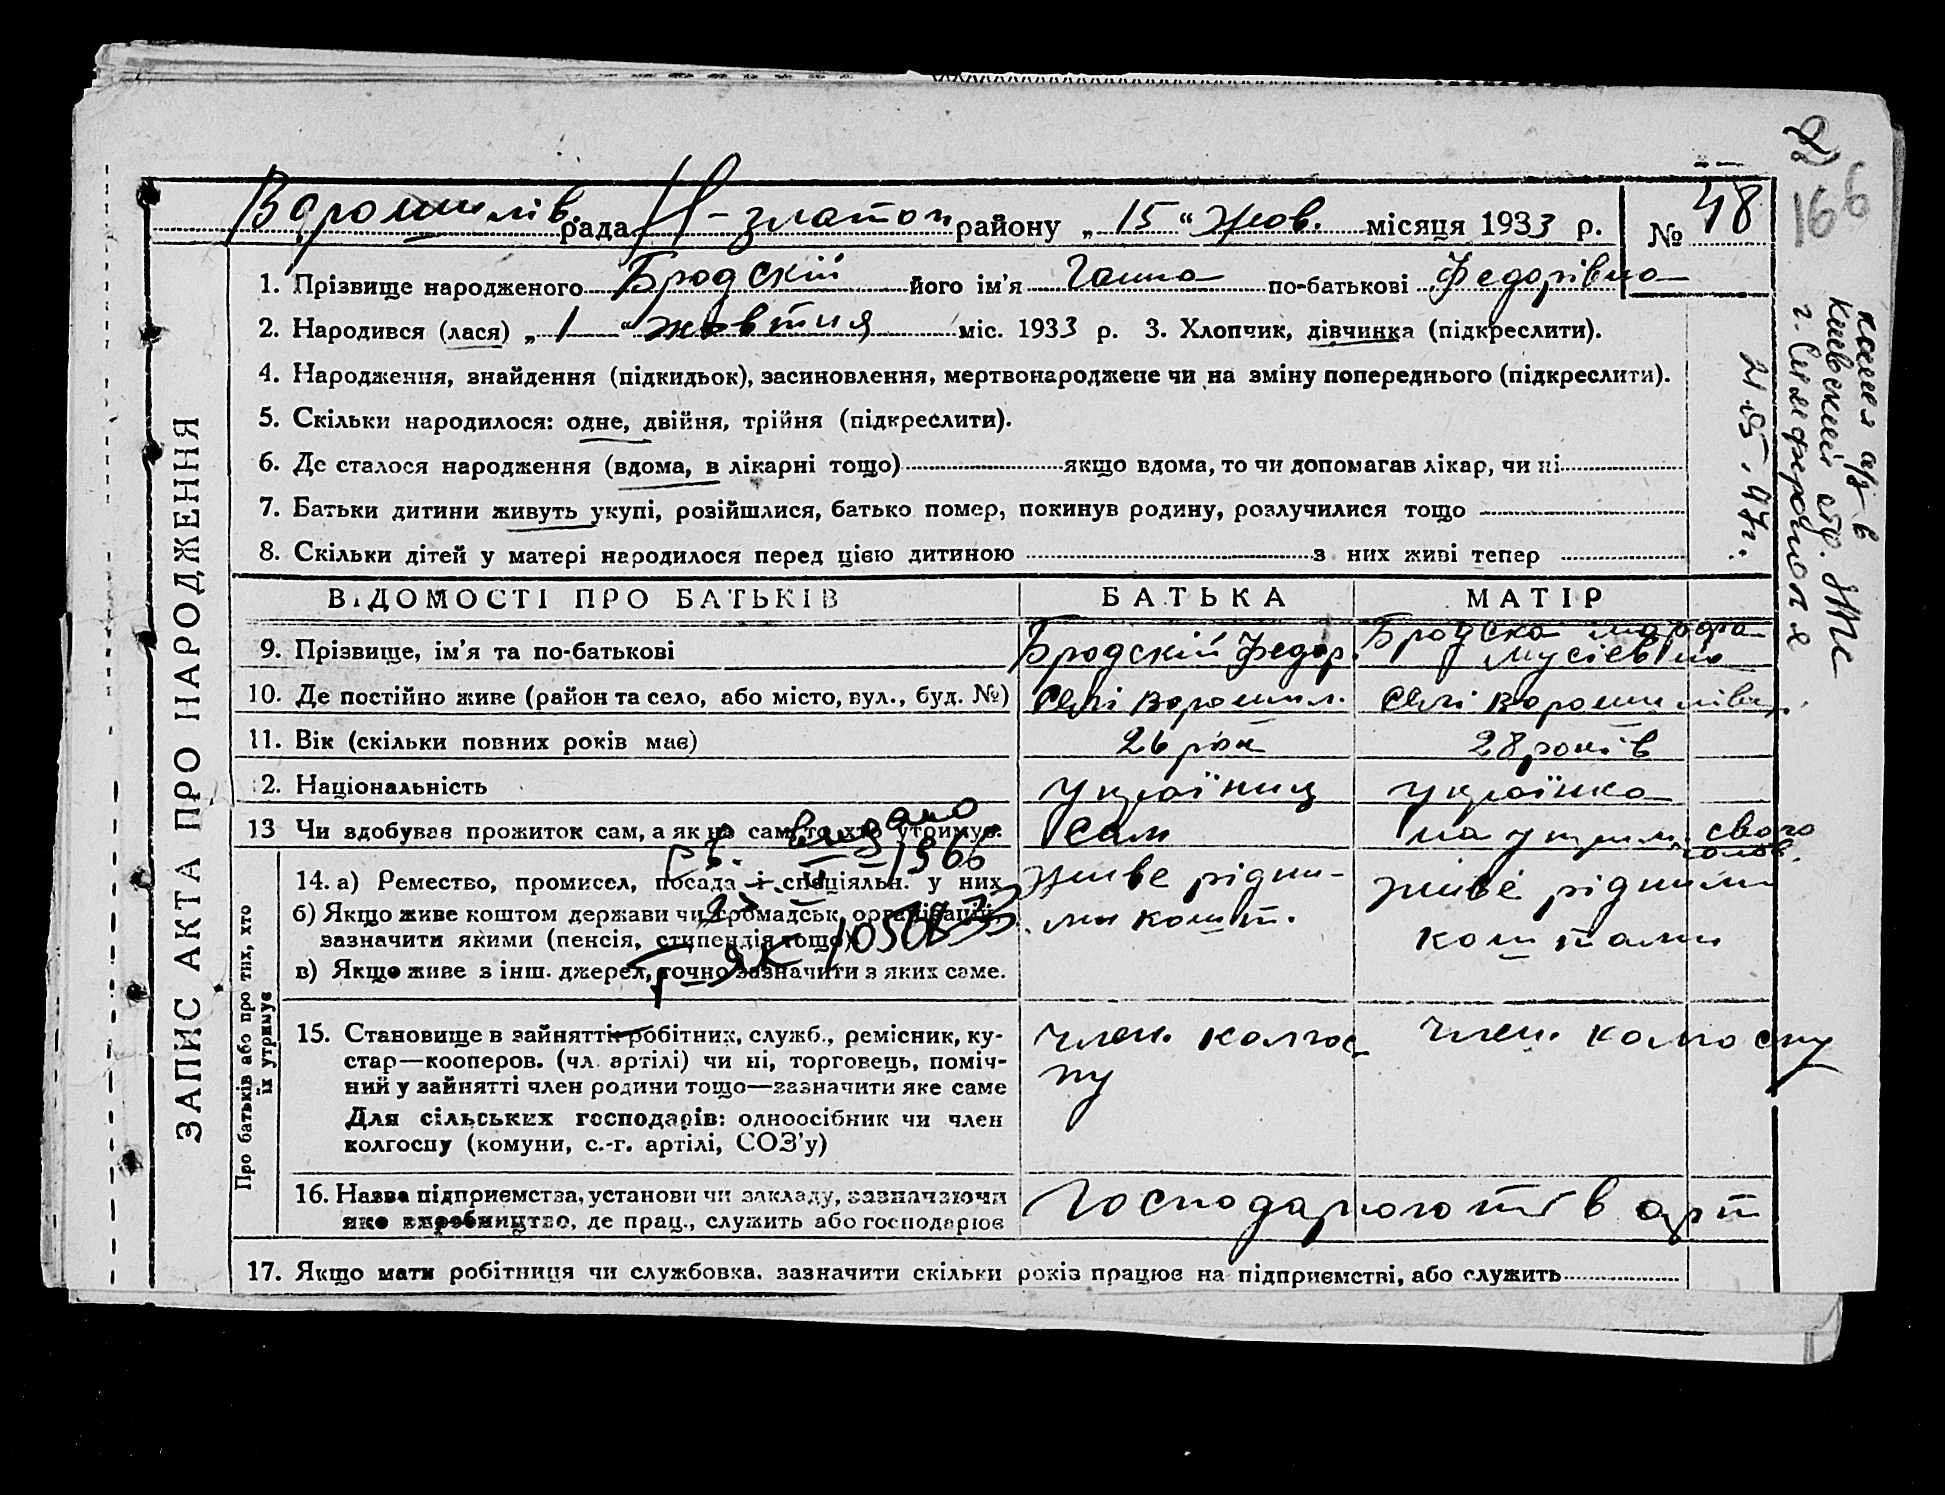 Ворошилів. рада Н-златоп району „ 15 “ Жов. місяця 1933 р. № 48
166
1. Прізвище народженого Бродскій його ім'я Ганна по-батькові Федорівна
2. Народився (лася) „ 1 “ жовтня міс. 1933 р. 3. Хлопчик, дівчинка (підкреслити).
4. Народження, знайдення (підкидьок), засиновлення, мертвонароджене чи на зміну попереднього (підкреслити).
5. Скільки народилося: одне, двійня, трійня (підкреслити).
6. Де сталося народження (вдома, в лікарні тощо) якщо вдома, то чи допомагав лікар, чи ні
7. Батьки дитини живуть укупі, розійшлися, батько помер, покинув родину, розлучилися тощо
8. Скільки дітей у матері народилося перед цією дитиною з них живі тепер
ВІДОМОСТІ ПРО БАТЬКІВ БАТЬКА МАТІР
9. Прізвище, ім'я та по-батькові Бродскій Федор. Бродска Марфа Мусіевна
10. Де постійно живе (район та село, або місто, вул., буд. №) селі Ворошил. селі Ворошилівц.
11. Вік (скільки повних років має) 26 рок 28 років
12. Національність українц українка
13 Чи здобував прожиток сам, а як не сам, то хто утримує. сам на утрим. свого чолов.
14. а) Ремество, промисел, посада і спеціяльн. у них живе рідни- живе рідними
б) Якщо живе коштом держави чи громадськ. організацій, ми кошт. коштами
зазначити якими (пенсія, стипендія тощо)
в) Якщо живе з інш. джерел, точно зазначити з яких саме.
видано
1966
15. Становище в зайнятті—робітник, служб., ремісник, ку- член. колгос- член. колгоспу
стар—кооперов. (чл. артілі) чи ні, торговець, поміч- пу
ний у зайнятті член родини тощо—зазначити яке саме
Для сільських господарів: одноосібник чи член
колгоспу (комуни, с.-г. артілі, СОЗ'у)
16. Назва підприємства, установи чи закладу, зазначаючи Господарюють в арт
яке виробництво, де прац., служить або господарює
17. Якщо мати робітниця чи службовка, зазначити скільки років працює на підприємстві, або служить
ЗАПИС АКТА ПРО НАРОДЖЕННЯ
Про батьків або про тих, хто
їх утримує
копия а/з в
Киевский отд. ЗАГС
г. Симферополя